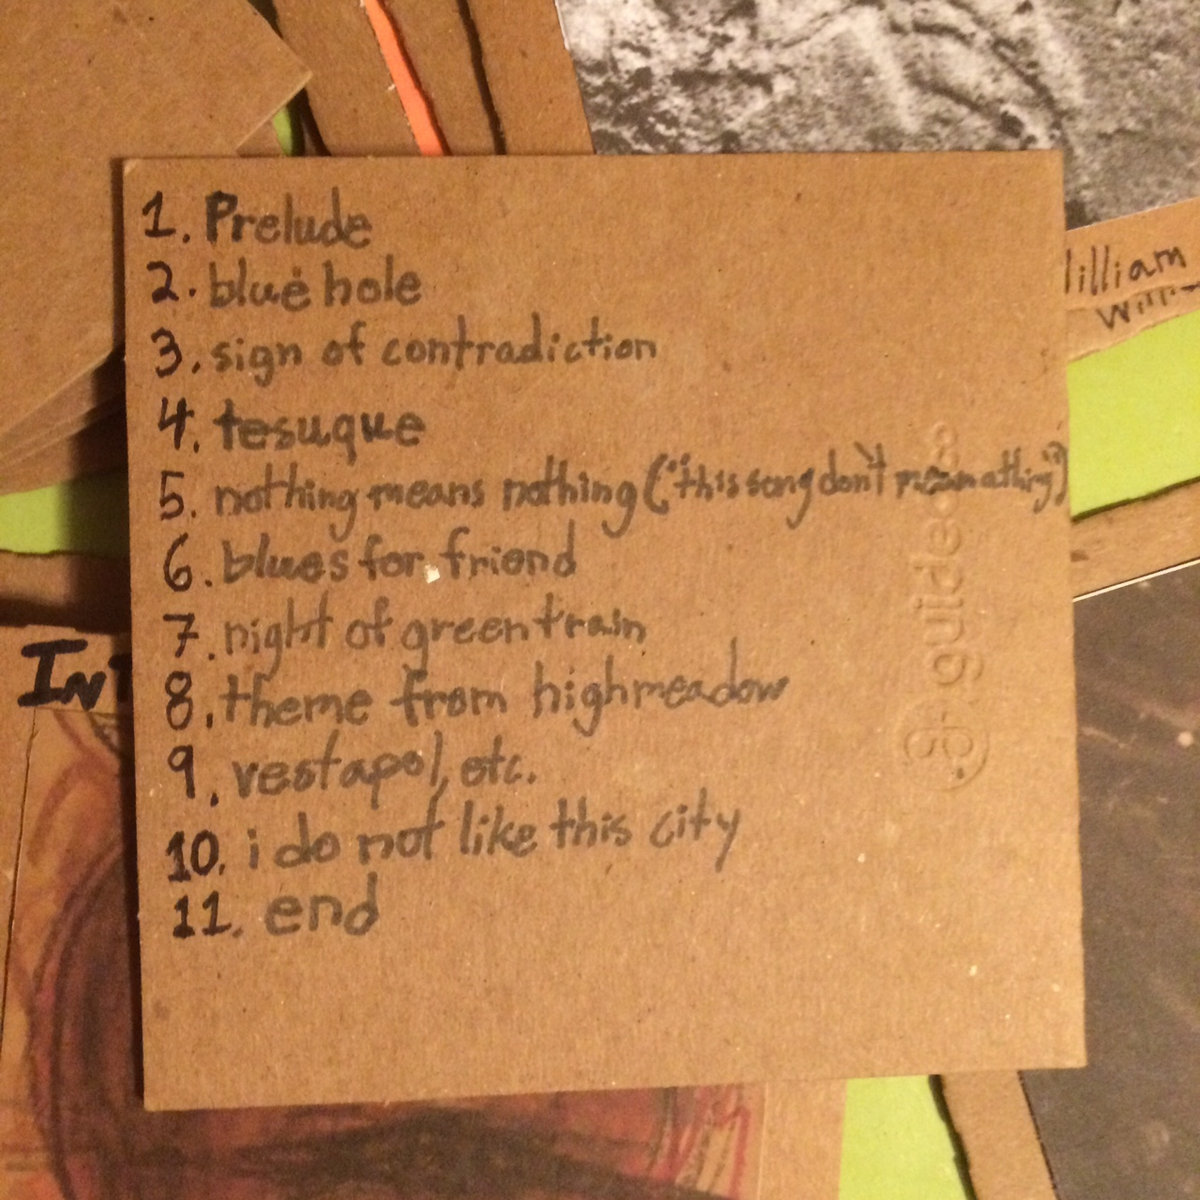 1. Prelude
2. blue hole
3. sign of contradiction
4. tesuque
5. nothing means nothing ("this song don't mean nothing")
6. blues for friend
7. night of green train
8. theme from highmeadow
9. vestapol, etc.
10. i do not like this city
11. end
guided
William